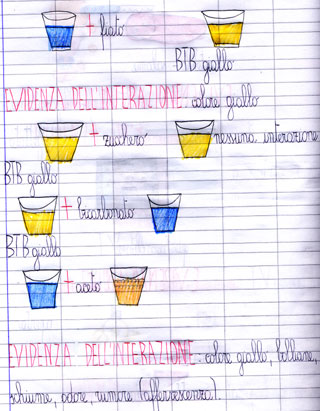 + fiato
BTB giallo
EVIDENZA DELL'INTERAZIONE: colore giallo
+ zucchero nessuna interazione
BTB giallo
+ bicarbonato
BTB giallo
+ aceto
EVIDENZA DELL'INTERAZIONE: colore giallo, bolliane,
schiume, odore, rumore (effervescenza).